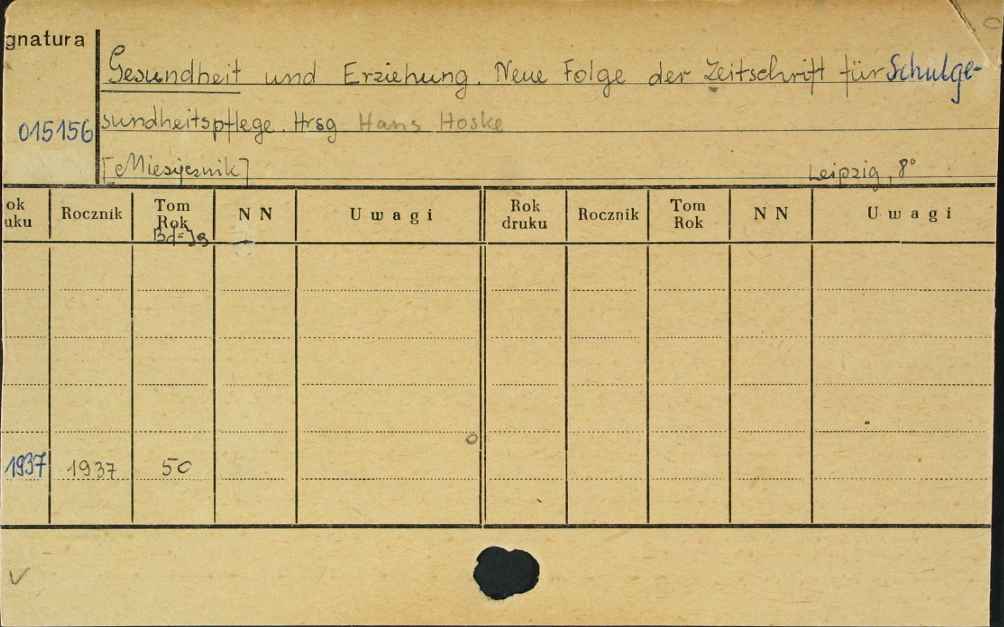 gnatura
Gesundheit und Erziehung. Neue Folge der Zeitschrift für Schulge-
015156 sundheitspflege. Hrsg Hans Hoske
[Miesięcznik] Leipzig, 8°
ok uku Rocznik Tom Rok Bd=Jg N N U w a g i Rok druku Rocznik Tom Rok N N U w a g i
1937 1937 50